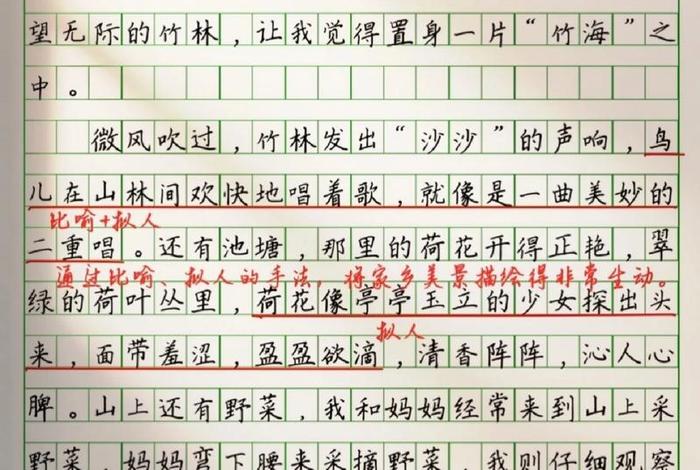 望无际的竹林，让我觉得置身一片“竹海”之
中。
微风吹过，竹林发出“沙沙”的声响，鸟
儿在山林间欢快地唱着歌，就像是一曲美妙的
比喻+拟人
二重唱。还有池塘，那里的荷花开得正艳，翠
通过比喻、拟人的手法，将家乡美景描绘得非常生动。
绿的荷叶丛里，荷花像亭亭玉立的少女探出头
拟人
来，面带羞涩，盈盈欲滴，清香阵阵，沁人心
脾。山上还有野菜，我和妈妈经常来到山上采
野菜，妈妈弯下腰来采摘野菜，我则仔细观察